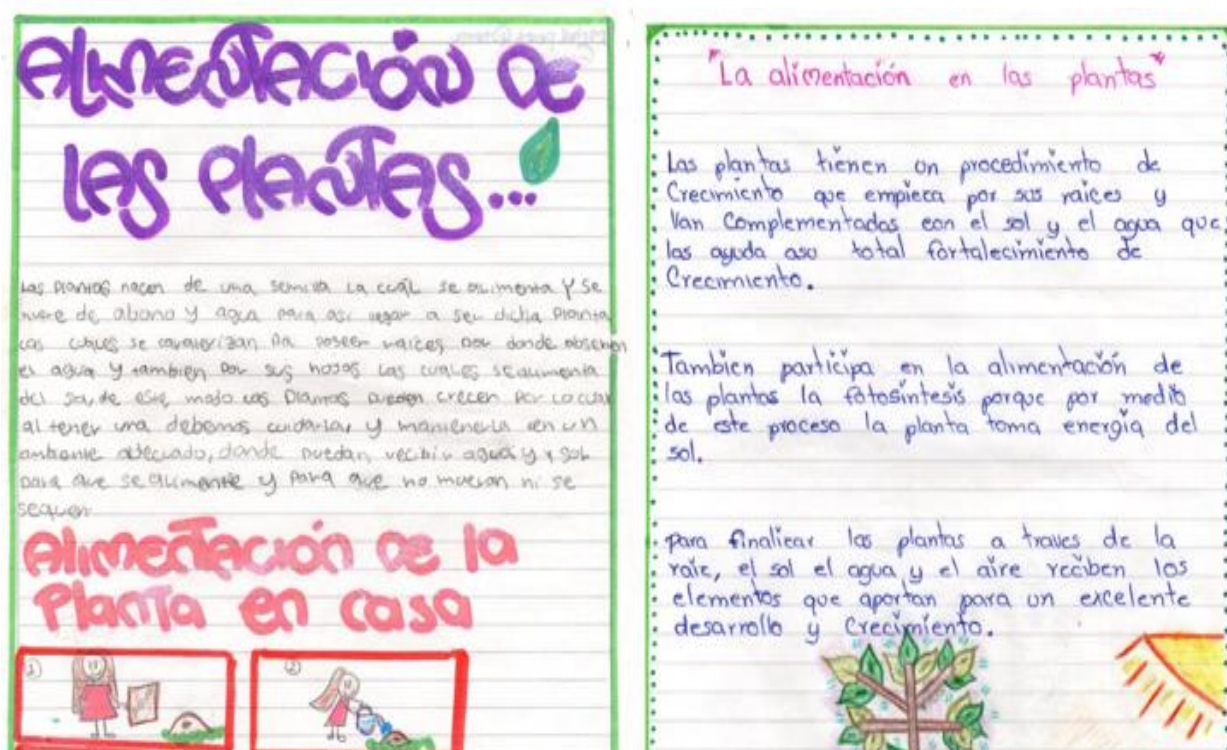 Alimentación de
las plantas...
Las plantas nacen de una semilla la cual se alimenta y se
nutre de abono y agua para asi llegar a ser dicha planta
las cuales se caracterizan por poseer raices por donde absorben
el agua y tambien por sus hojas las cuales se alimenta
del sol, de este modo las plantas pueden crecer por lo cual
al tener una debemos cuidarlas y mantenerla en un
ambiente adecuado, donde puedan recibir agua y sol
para que se alimente y para que no mueran ni se
sequen
Alimentación de la
Planta en casa
1)
2)
"La alimentación en las plantas"
Las plantas tienen un procedimiento de
Crecimiento que empieca por sus raices y
Van Complementadas con el sol y el agua que
las ayuda aso total fortalecimiento de
Crecimiento.
Tambien participa en la alimentación de
las plantas la fotosíntesis porque por medio
de este proceso la planta toma energia del
sol.
para finaliear las plantas a traves de la
raie, el sol el agua y el aire reciben los
elementos que aportan para un excelente
desarrollo y Crecimiento.